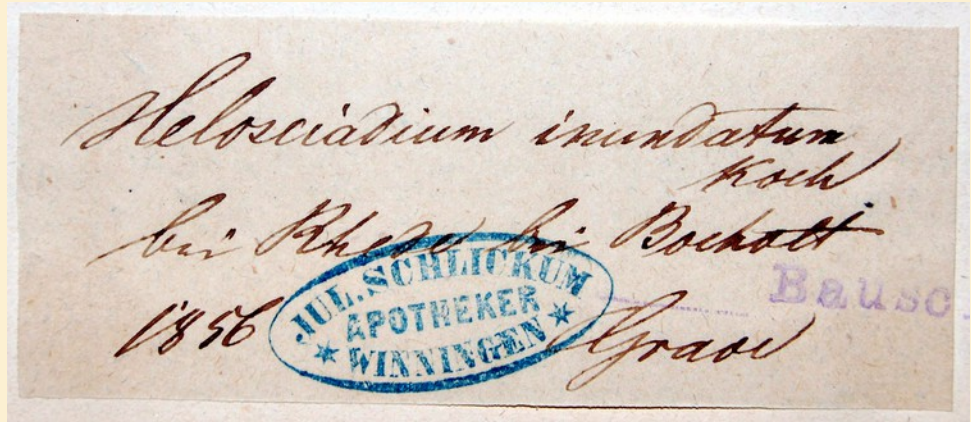 Helosciadium inundatum
Koch
bei Rhede bei Bocholt
JUL. SCHLICKUM
APOTHEKER
WINNINGEN
Bausc
1856